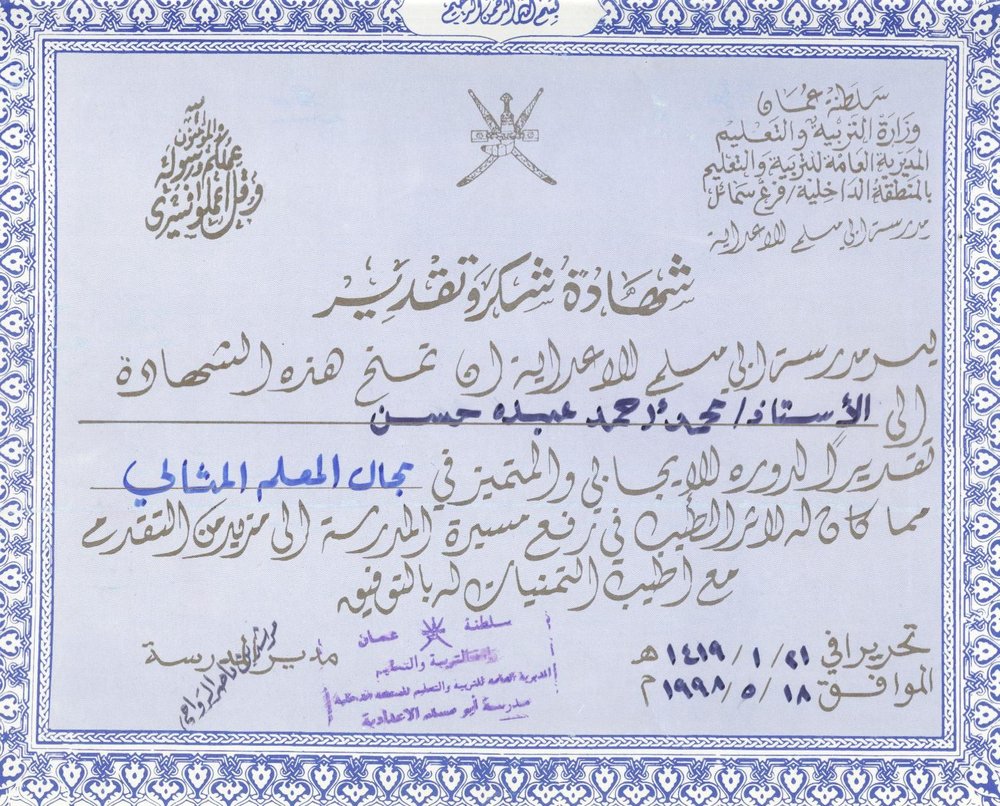 بسم الله الرحمن الرحيم
سلطنة عمان
وزارة التربية والتعليم
المديرية العامة للتربية والتعليم
بالمنطقة الداخلية/فرع سمائل
مدرسة ابي مسلم الاعدادية
وقل اعملوا فسيرى
الله
عملكم ورسوله
والمؤمنون
شهادة شكر وتقدير
يسر مدرسة ابي مسلم الاعدادية ان تمنح هذه الشهادة
الى الأستاذ/محمد أحمد عبده حسن
تقديرًا لدوره الايجابي والمتميز في مجال المعلم المثالي
مما كان له الاثر الطيب في رفع مسيرة المدرسة الى مزيد من التقدم
مع اطيب التمنيات له بالتوفيق
تحريرا في ٢١/ ١ / ١٤١٩ هـ
الموافق ١٨/ ٥ /١٩٩٨ م
مدير المدرسة
سلطنة عمان
التربية والتعليم
المديرية العامة للتربية والتعليم للمنطقة الداخلية
مدرسة أبو مسلم الاعدادية